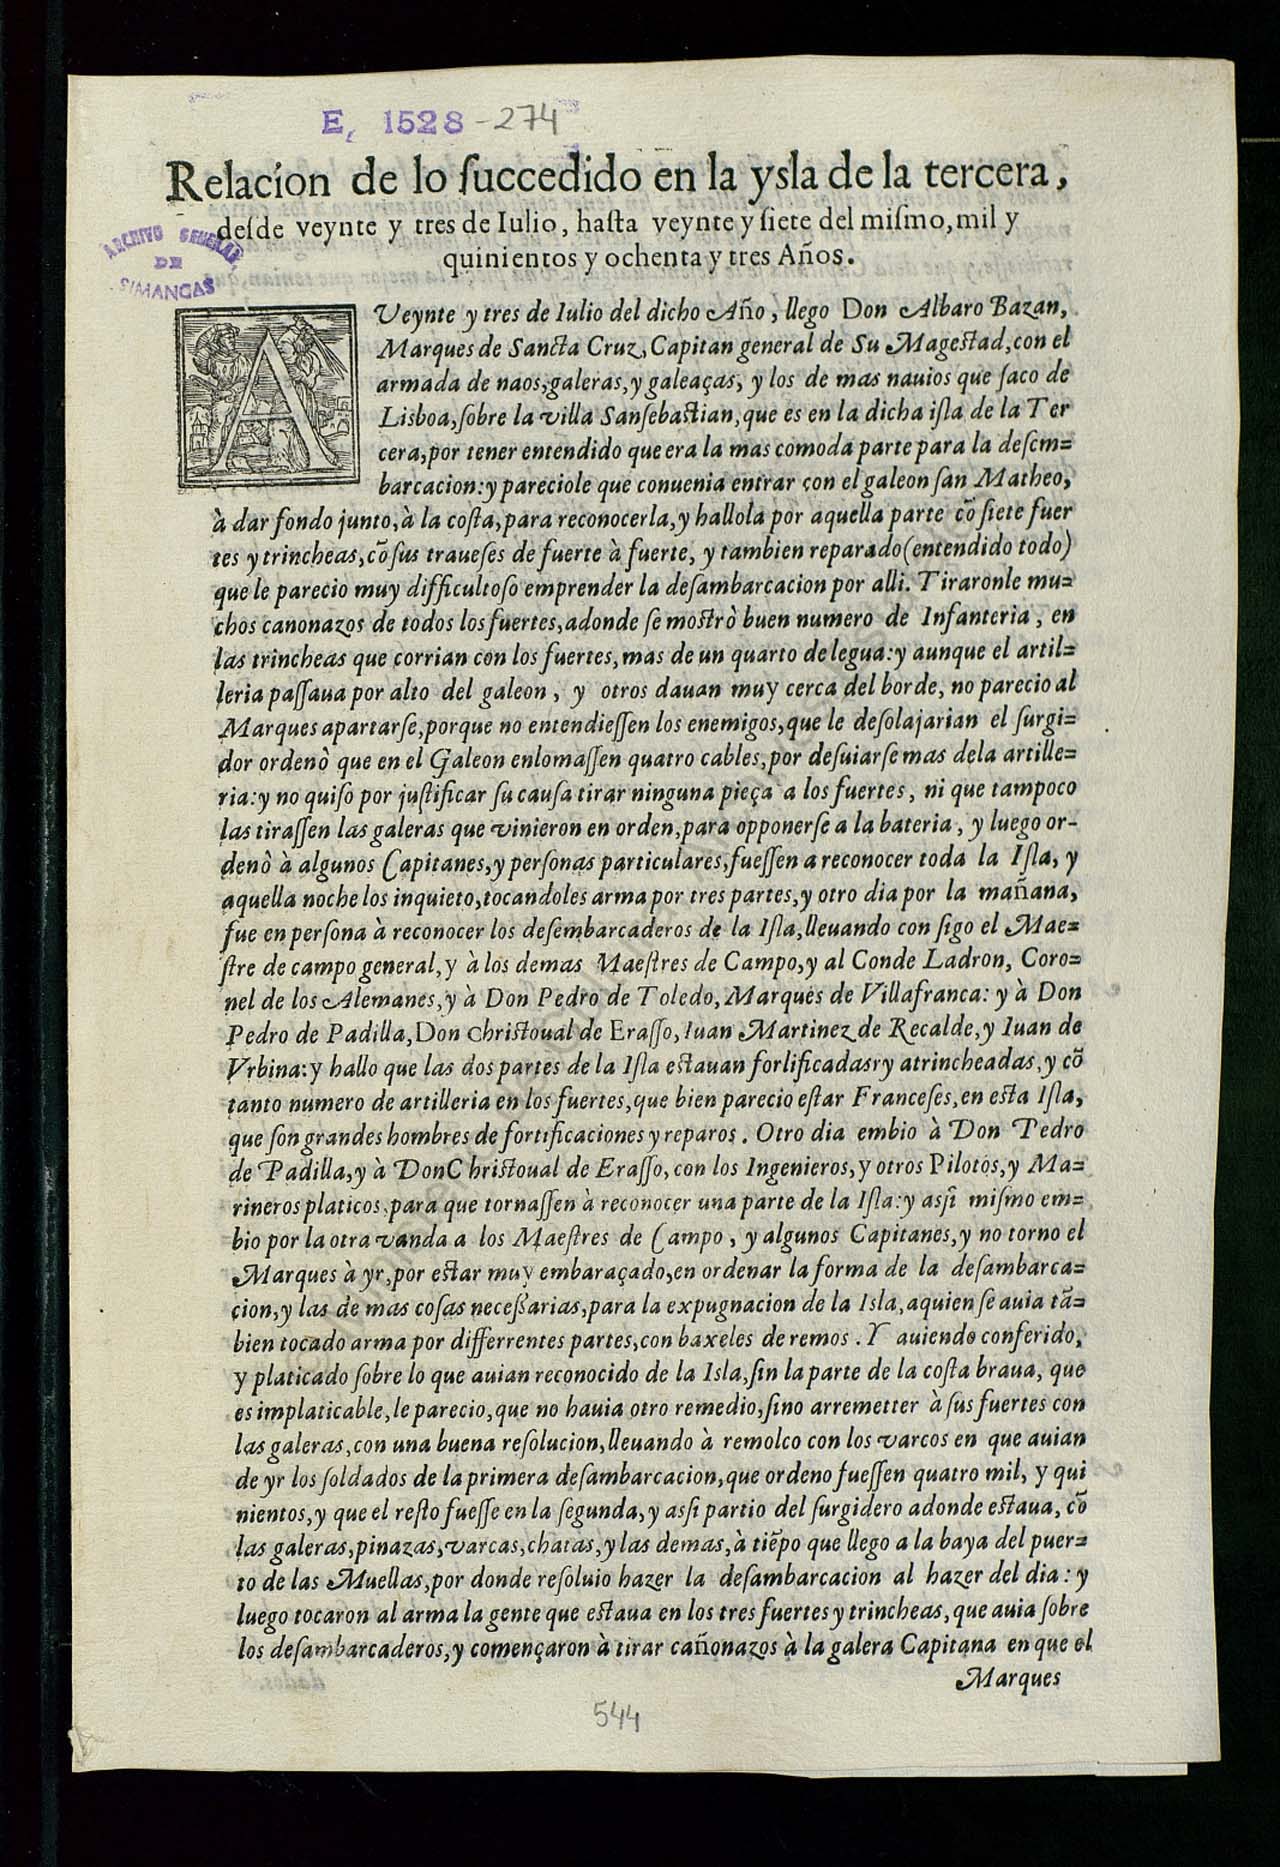 E, 1528-274
Relacion de lo ſuccedido en la ysla de la tercera,
deſde veynte y tres de Iulio, haſta veynte y ſiete del miſmo, mil y
quinientos y ochenta y tres Años.
ARCHIVO GENERAL
DE
SIMANCAS
A Veynte y tres de Iulio del dicho Año, llego Don Albaro Bazan,
Marques de Sancta Cruz, Capitan general de Su Magestad, con el
armada de naos, galeras, y galeaças, y los de mas nauios que ſaco de
Lisboa, ſobre la villa Sanſebastian, que es en la dicha iſla de la Ter
cera, por tener entendido que era la mas comoda parte para la deſem=
barcacion: y pareciole que conuenia entrar con el galeon ſan Matheo,
à dar fondo junto, à la coſta, para reconocerla, y hallola por aquella parte cō ſiete fuer
tes y trincheas, cō ſus traueſes de fuerte à fuerte, y tambien reparado (entendido todo)
que le parecio muy difficultoſo emprender la deſambarcacion por alli. Tiraronle mu=
chos canonazos de todos los fuertes, adonde ſe mostrò buen numero de Infanteria, en
las trincheas que corrian con los fuertes, mas de un quarto de legua: y aunque el artil=
leria paſſaua por alto del galeon, y otros dauan muy cerca del borde, no parecio al
Marques apartarſe, porque no entendieſſen los enemigos, que le deſolajarian el ſurgi=
dor ordenò que en el Galeon enlomaſſen quatro cables, por deſuiarſe mas dela artille=
ria: y no quiſo por juſtificar ſu cauſa tirar ninguna pieça a los fuertes, ni que tampoco
las tiraſſen las galeras que vinieron en orden, para opponerſe a la bateria, y luego or-
denò à algunos Capitanes, y perſonas particulares, fueſſen a reconocer toda la Iſla, y
aquella noche los inquieto, tocandoles arma por tres partes, y otro dia por la mañana,
fue en perſona à reconocer los deſembarcaderos de la Iſla, lleuando con ſigo el Mae=
ſtre de campo general, y à los demas Maeſtres de Campo, y al Conde Ladron, Coro=
nel de los Alemanes, y à Don Pedro de Toledo, Marques de Villafranca: y à Don
Pedro de Padilla, Don Christoual de Eraſſo, Iuan Martinez de Recalde, y Iuan de
Vrbina: y hallo que las dos partes de la Iſla estauan forlificadasry atrincheadas, y cō
tanto numero de artilleria en los fuertes, que bien parecio eſtar Franceſes, en esta Iſla,
que ſon grandes hombres de fortificaciones y reparos. Otro dia embio à Don Pedro
de Padilla, y à Don Christoual de Eraſſo, con los Ingenieros, y otros Pilotos, y Ma=
rineros platicos, para que tornaſſen à reconocer una parte de la Iſla: y aſſi miſmo em=
bio por la otra vanda a los Maeſtres de Campo, y algunos Capitanes, y no torno el
Marques à yr, por eſtar muy embaraçado, en ordenar la forma de la deſambarca=
cion, y las de mas coſas neceßarias, para la expugnacion de la Isla, aquien ſe auia tā=
bien tocado arma por differrentes partes, con baxeles de remos. Y auiendo conferido,
y platicado ſobre lo que auian reconocido de la Isla, ſin la parte de la coſta braua, que
es implaticable, le parecio, que no hauia otro remedio, ſino arremetter à ſus fuertes con
las galeras, con una buena reſolucion, lleuando à remolco con los varcos en que auian
de yr los ſoldados de la primera deſambarcacion, que ordeno fueſſen quatro mil, y qui
nientos, y que el reſto fueſſe en la ſegunda, y aſſi partio del ſurgidero adonde estaua, cō
las galeras, pinazas, varcas, chatas, y las demas, à tiēpo que llego a la baya del puer=
to de las Muellas, por donde reſoluio hazer la deſambarcacion al hazer del dia: y
luego tocaron al arma la gente que estaua en los tres fuertes y trincheas, que auia ſobre
los deſambarcaderos, y començaron à tirar cañonazos à la galera Capitana en que el
Marques
544